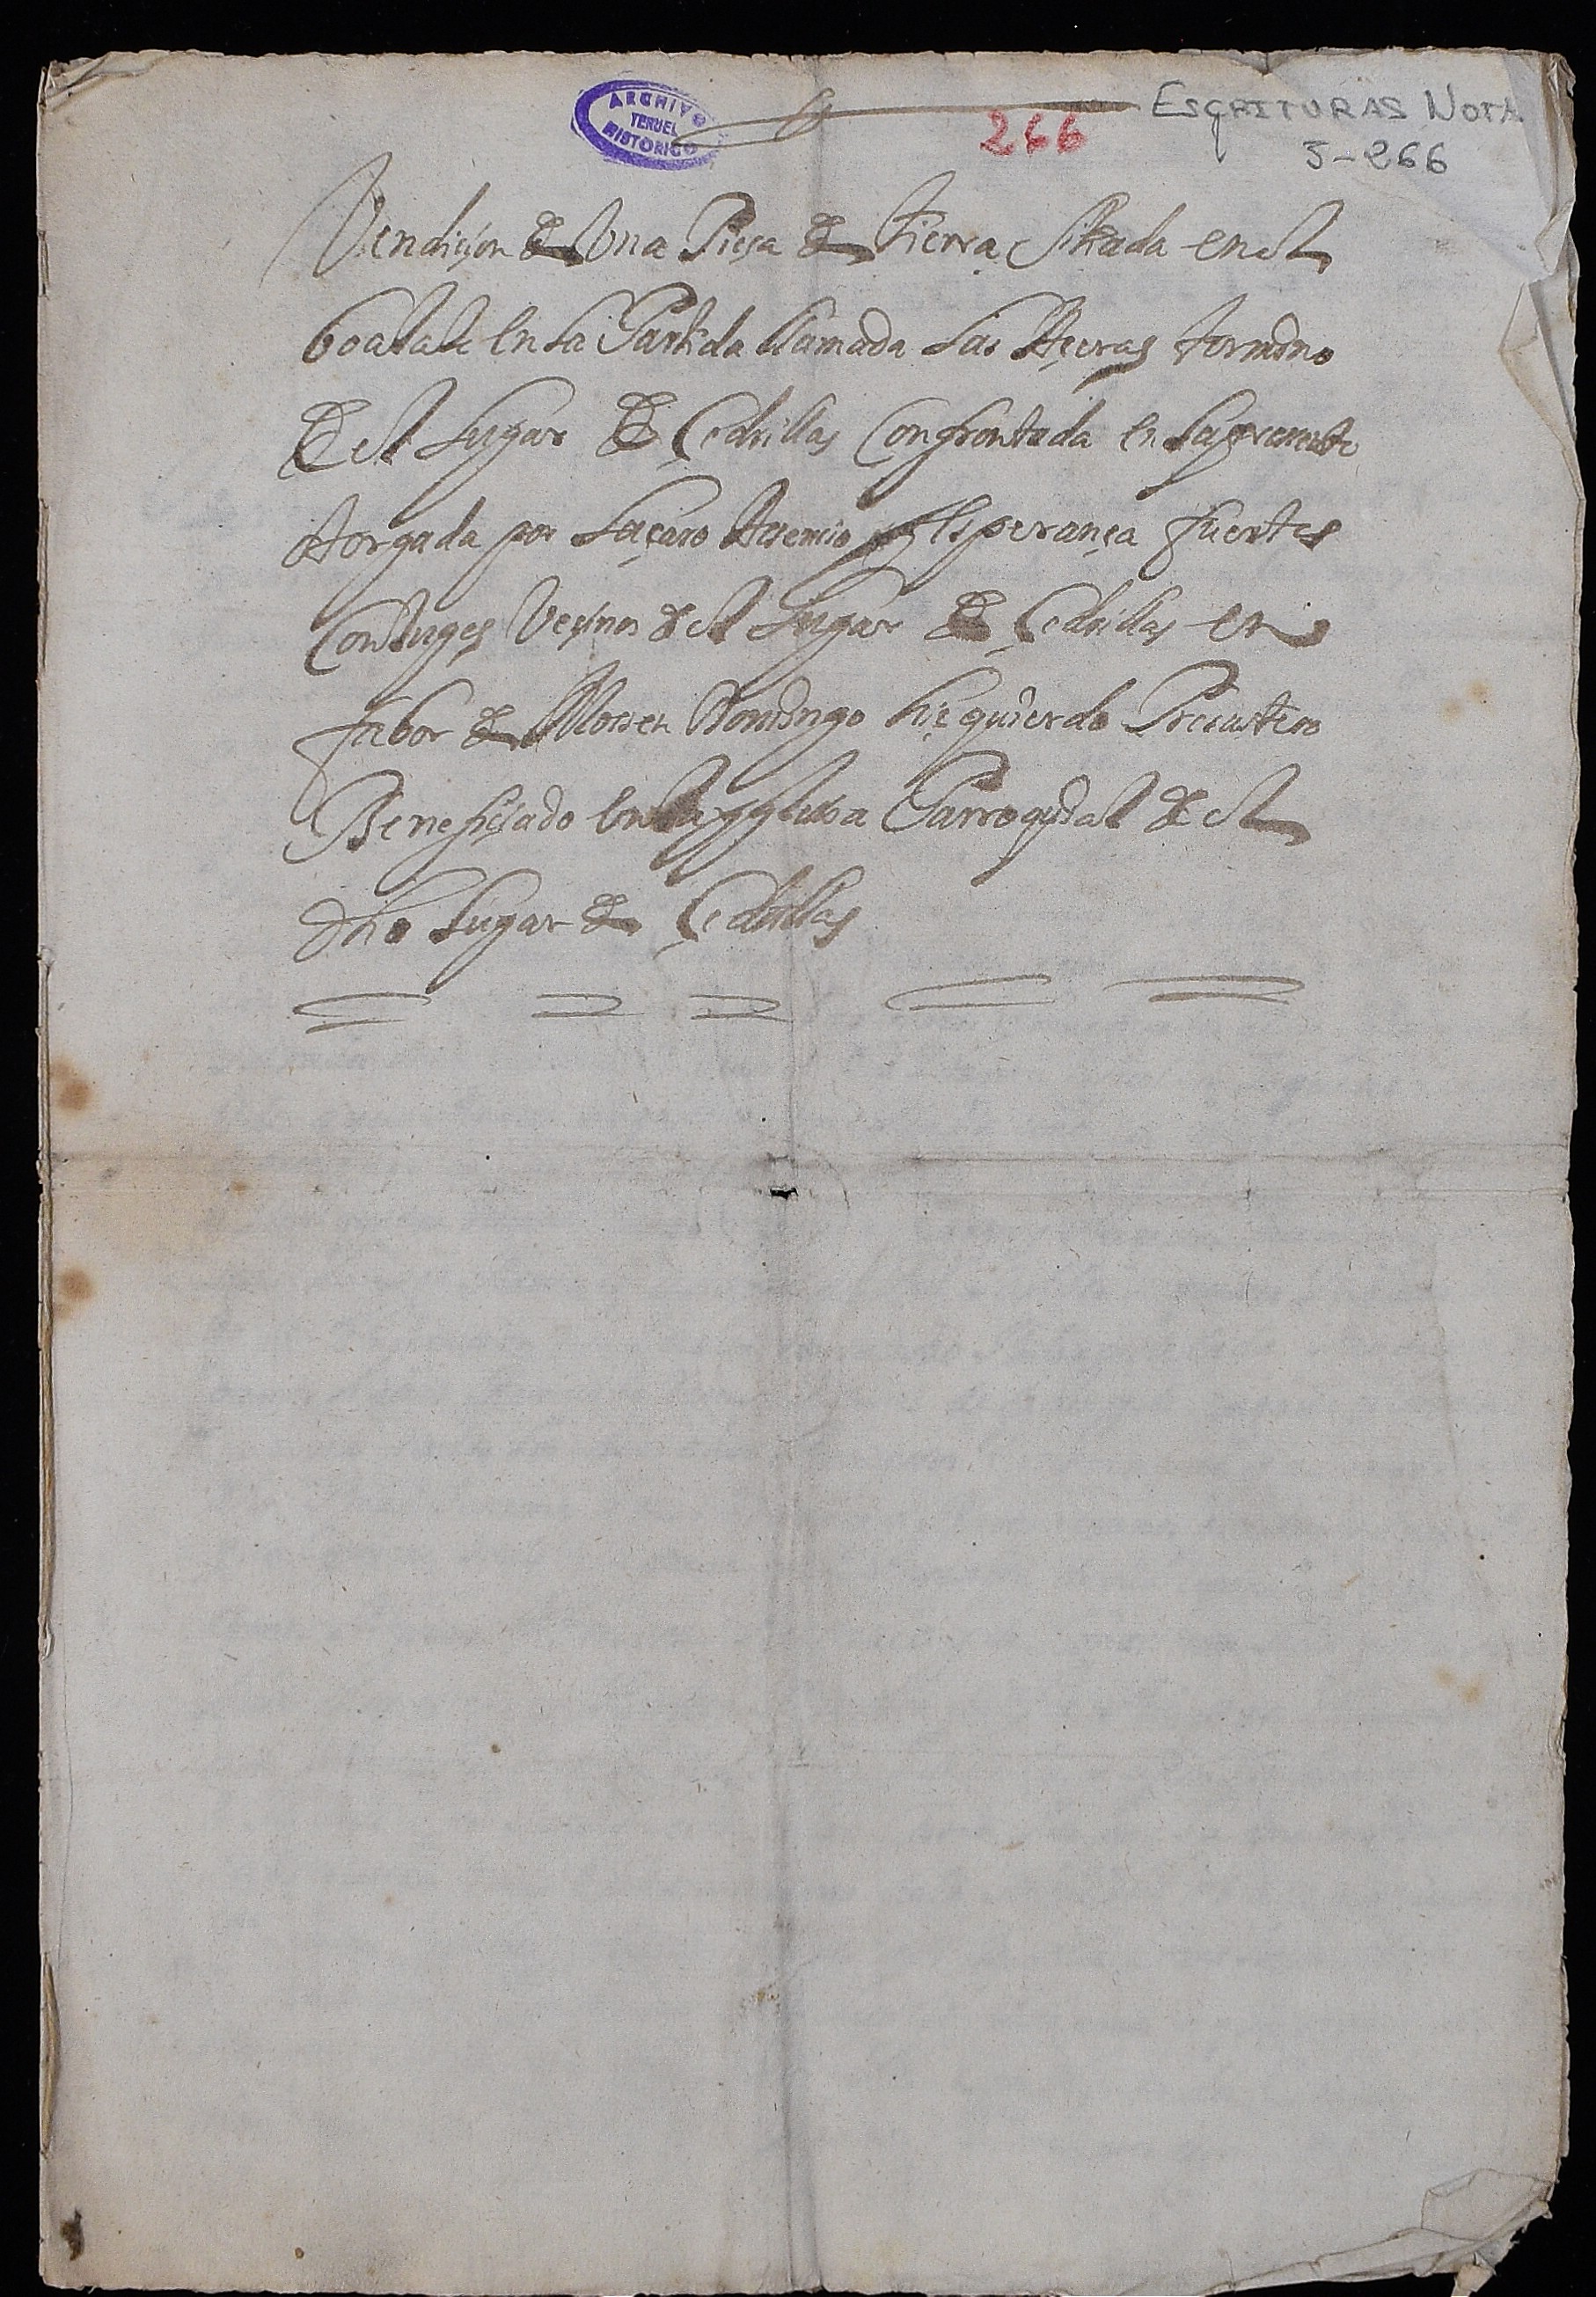 ARCHIVO
TERUEL
HISTORICO
266
ESCRITURAS NOTA
5-266
Vendiçion de Una Pieça de tierra sitiada en el
boalaxe en la Partida llamada las termino
de el lugar de Çedrillas Confrontada en la presente
otorgada por Laçaro Asensio y Esperança fuertes
Coniuges Veçinos de el lugar de Çedrillas en
fabor de Mossen Domingo hizquierdo
Benefiçiado en la ygglesia Parroquial de el
dho lugar de Çedrillas